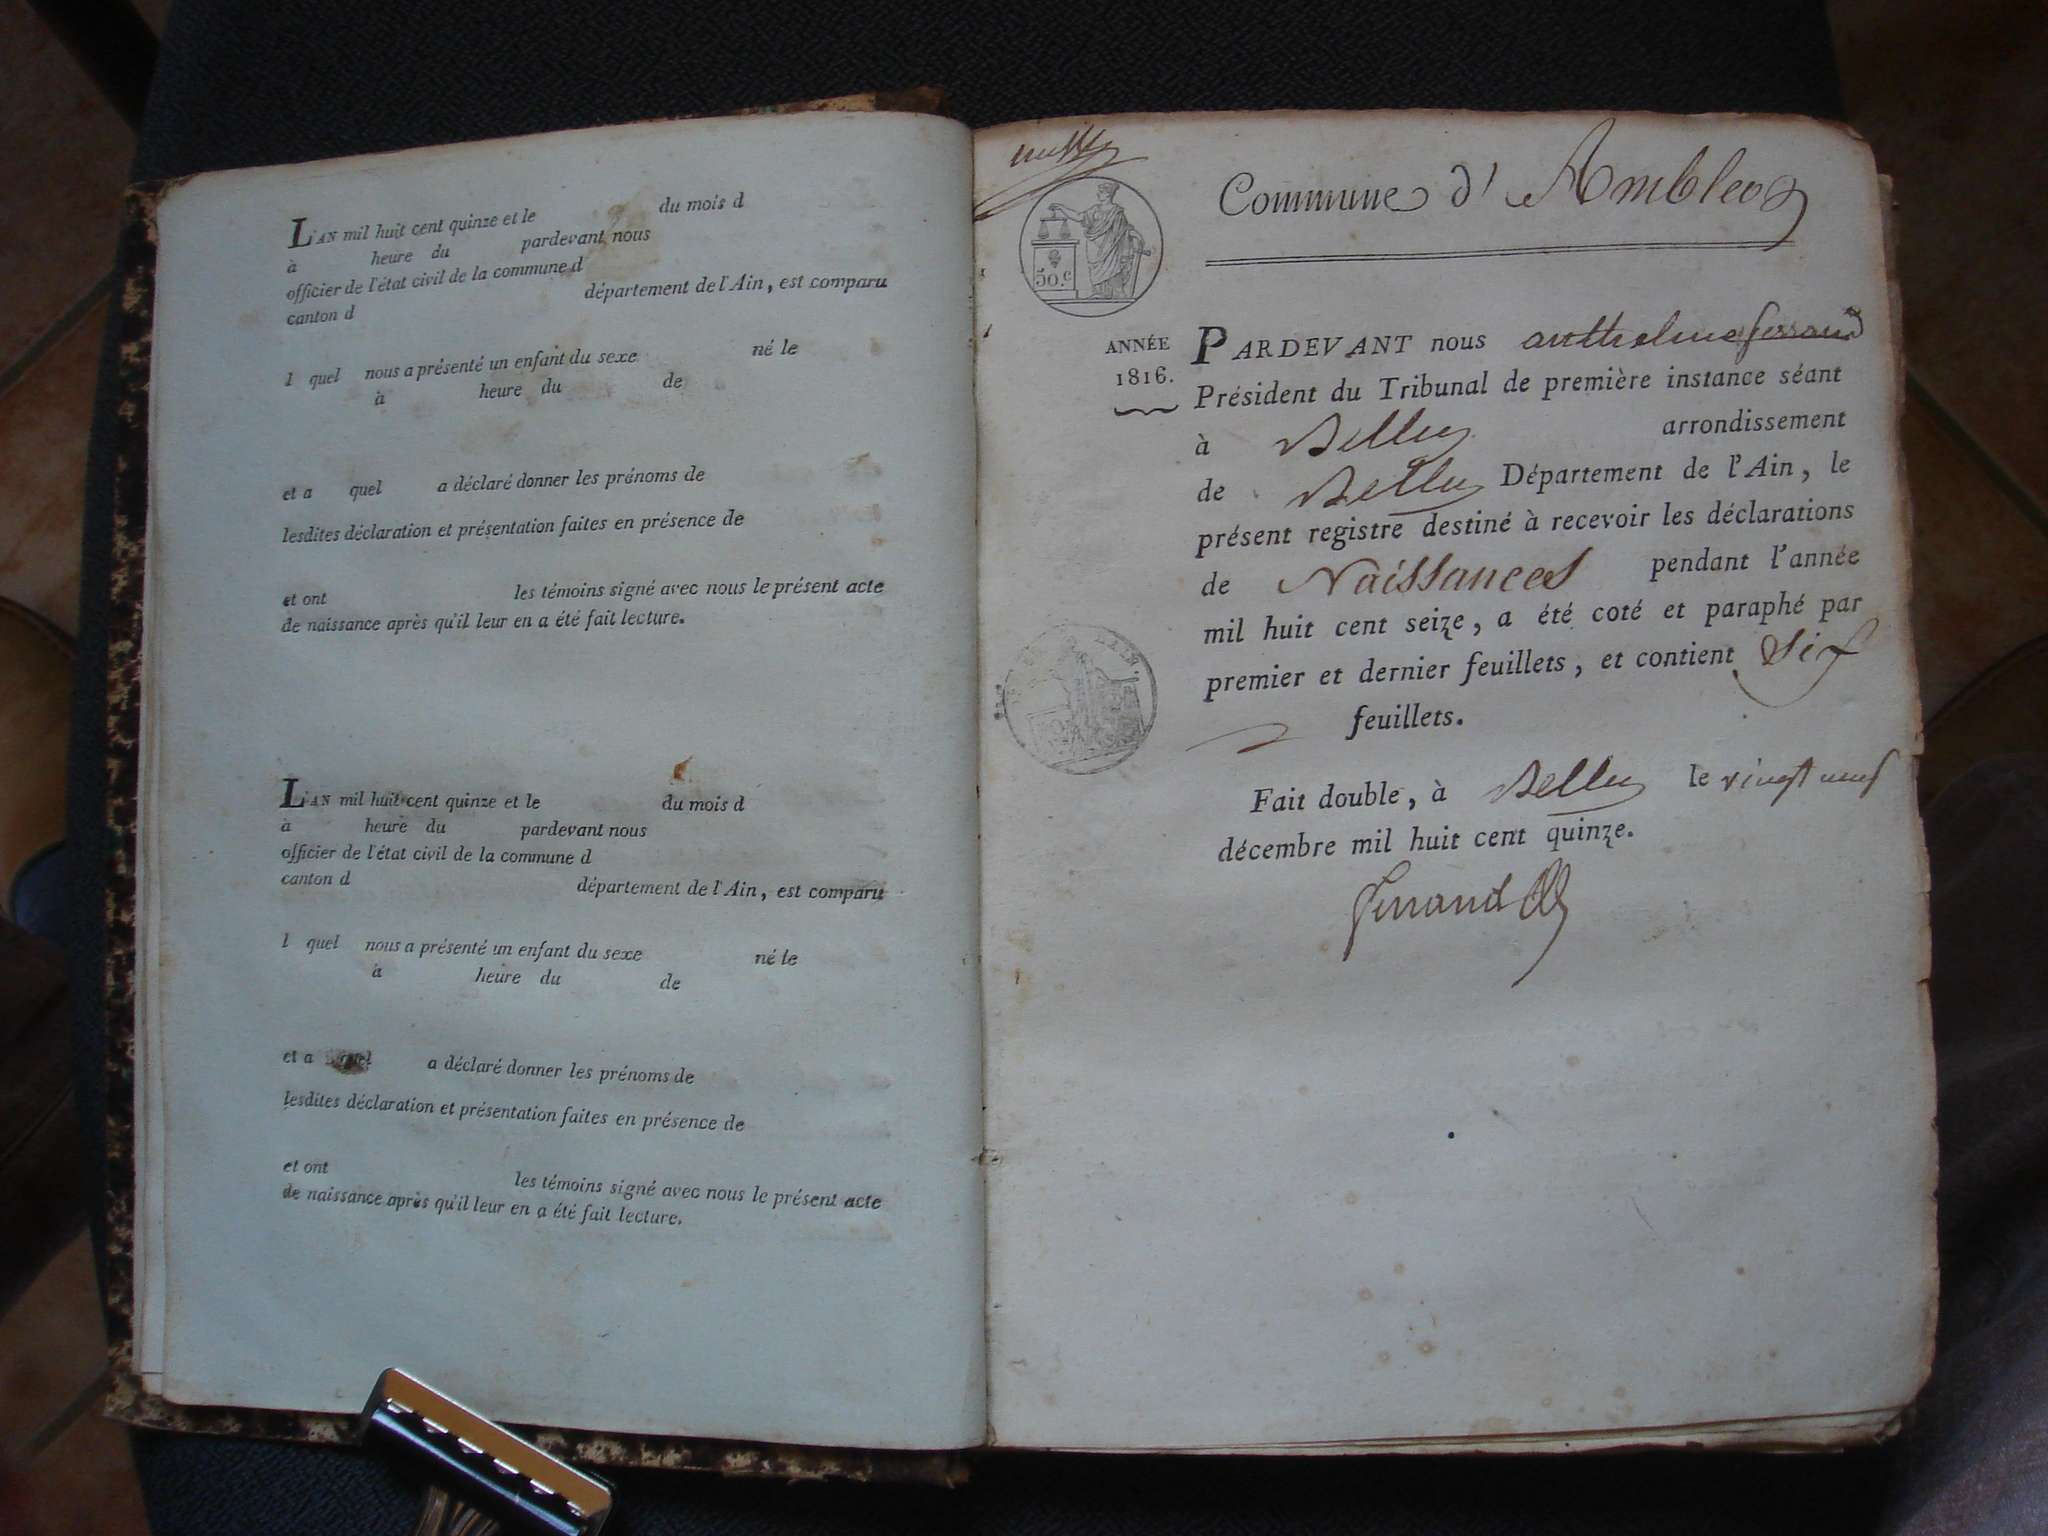 L'AN mil huit cent quinze et le du mois d
à heure du pardevant nous
officier de l'état civil de la commune d
canton d département de l'Ain, est comparu
l quel nous a présenté un enfant du sexe né le
à heure du de
et a quel a déclaré donner les prénoms de
lesdites déclaration et présentation faites en présence de
et ont les témoins signé avec nous le présent acte
de naissance après qu'il leur en a été fait lecture.
L'AN mil huit cent quinze et le du mois d
à heure du pardevant nous
officier de l'état civil de la commune d
canton d département de l'Ain, est comparu
l quel nous a présenté un enfant du sexe né le
à heure du de
et a quel a déclaré donner les prénoms de
lesdites déclaration et présentation faites en présence de
et ont les témoins signé avec nous le présent acte
de naissance après qu'il leur en a été fait lecture.
Commune d'Ambleon
50.c
ANNÉE
1816.
PARDEVANT nous anthelme ferrand
Président du Tribunal de première instance séant
à Belley arrondissement
de Belley Département de l'Ain, le
présent registre destiné à recevoir les déclarations
de Naissances pendant l'année
mil huit cent seize, a été coté et paraphé par
premier et dernier feuillets, et contient Six
feuillets.
Fait double, à Belley le vingt neuf
décembre mil huit cent quinze.
ferrand